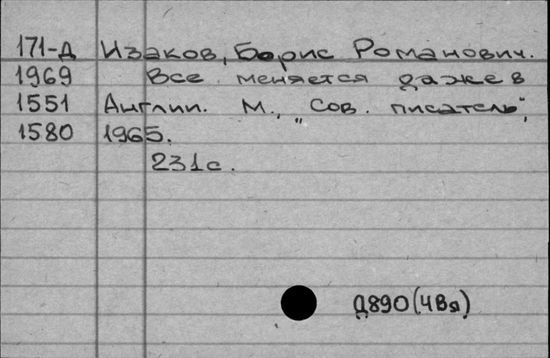 171-Д Изаков, Борис Романович.
1969 Все меняется даже в
1551 Англии. М., "Сов. писатель",
1580 1965.
231с.
Д890(4Вя)